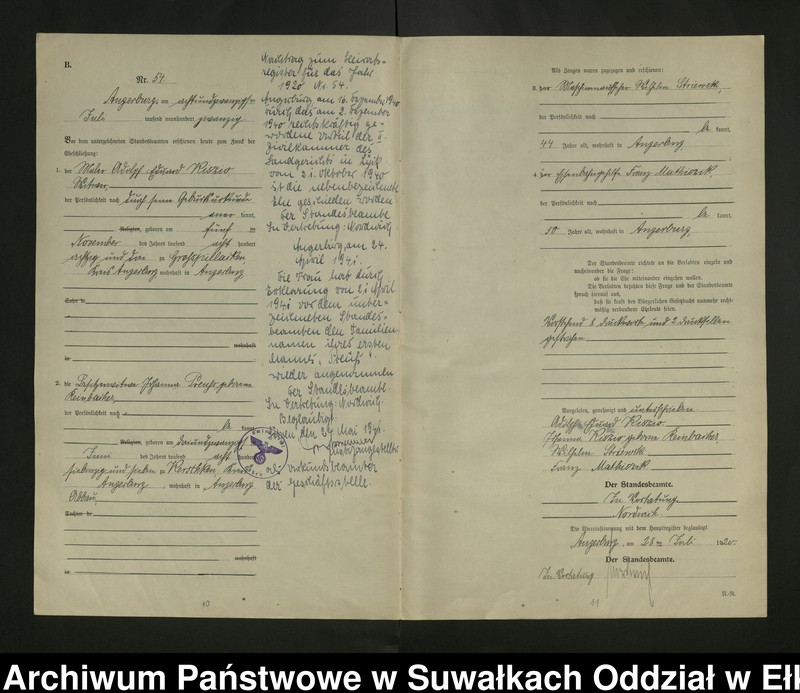 B.
Nr. 54
Angerburg, am achtundzwanzigsten
Juli tausend neunhundert zwanzig
Vor dem unterzeichneten Standesbeamten erschienen heute zum Zweck der
Eheschließung:
1. der Maler Adolf Eduard
Witwer,
der Persönlichkeit nach durch seine Geburtsurkunde
kannt,
Religion, geboren am fünf
November des Jahres tausend acht hundert
achtzig und drei zu
Kreis Angerburg wohnhaft in Angerburg
Sohn de
wohnhaft
in
2. die Besitzerwitwe Johanna Preuß geborene
Reinbacher,
der Persönlichkeit nach
be kannt,
Religion, geboren am dreiundzwanzig
Juni des Jahres tausend acht hundert
siebenzig und sieben zu Kreis
Angerburg, wohnhaft in Angerburg
Abbau,
Tochter de
wohnhaft
in
10
Nachtrag zum Heirats-
register für das Jahr
1920 Nr. 54.
Angerburg, am 16. Dezember 1940
Durch das am 2. Dezember
1940 rechtskräftig ge-
wordene Urteil der II.
Zivilkammer des
Landgerichts in Lyck
vom 21. Oktober 1940
ist die nebenbezeichnete
Ehe geschieden worden
Der Standesbeamte
In Vertretung:
Angerburg, am 24.
April 1941.
Die Frau hat durch
Erklärung vom 21. April
1941 vor dem unter-
zeichneten Standes-
beamten den Familien-
namen ihres ersten
Mannes „Preuß"
wieder angenommen
Der Standesbeamte.
In Vertretung:
Beglaubigt.
den 27. Mai 1941.
Justizangestellter
als Urkundsbeamter
der Geschäftsstelle.
Als Zeugen waren zugezogen und erschienen:
3. der Wilhelm Striewek,
der Persönlichkeit nach
be kannt,
44 Jahre alt, wohnhaft in Angerburg,
4. der Franz Mathiszik
der Persönlichkeit nach
be kannt,
50 Jahre alt, wohnhaft in Angerburg,
Der Standesbeamte richtete an die Verlobten einzeln und
nacheinander die Frage:
ob sie die Ehe miteinander eingehen wollen.
Die Verlobten bejahten diese Frage und der Standesbeamte
sprach hierauf aus,
daß sie kraft des Bürgerlichen Gesetzbuchs nunmehr recht-
mäßig verbundene Eheleute seien.
Vorstehend 8 Druckworte und 2 Druckzeilen
gestrichen.
Vorgelesen, genehmigt und unterschrieben
Adolf Eduard
Johanna geborene Reinbacher,
Wilhelm Striewek
Franz Mathiszik
Der Standesbeamte.
In Vertretung.
Die Übereinstimmung mit dem Hauptregister beglaubigt
Angerburg, am 28 ten Juli 1920
Der Standesbeamte.
In Vertretung
11
Archiwum Państwowe w Suwałkach Oddział w Ełk